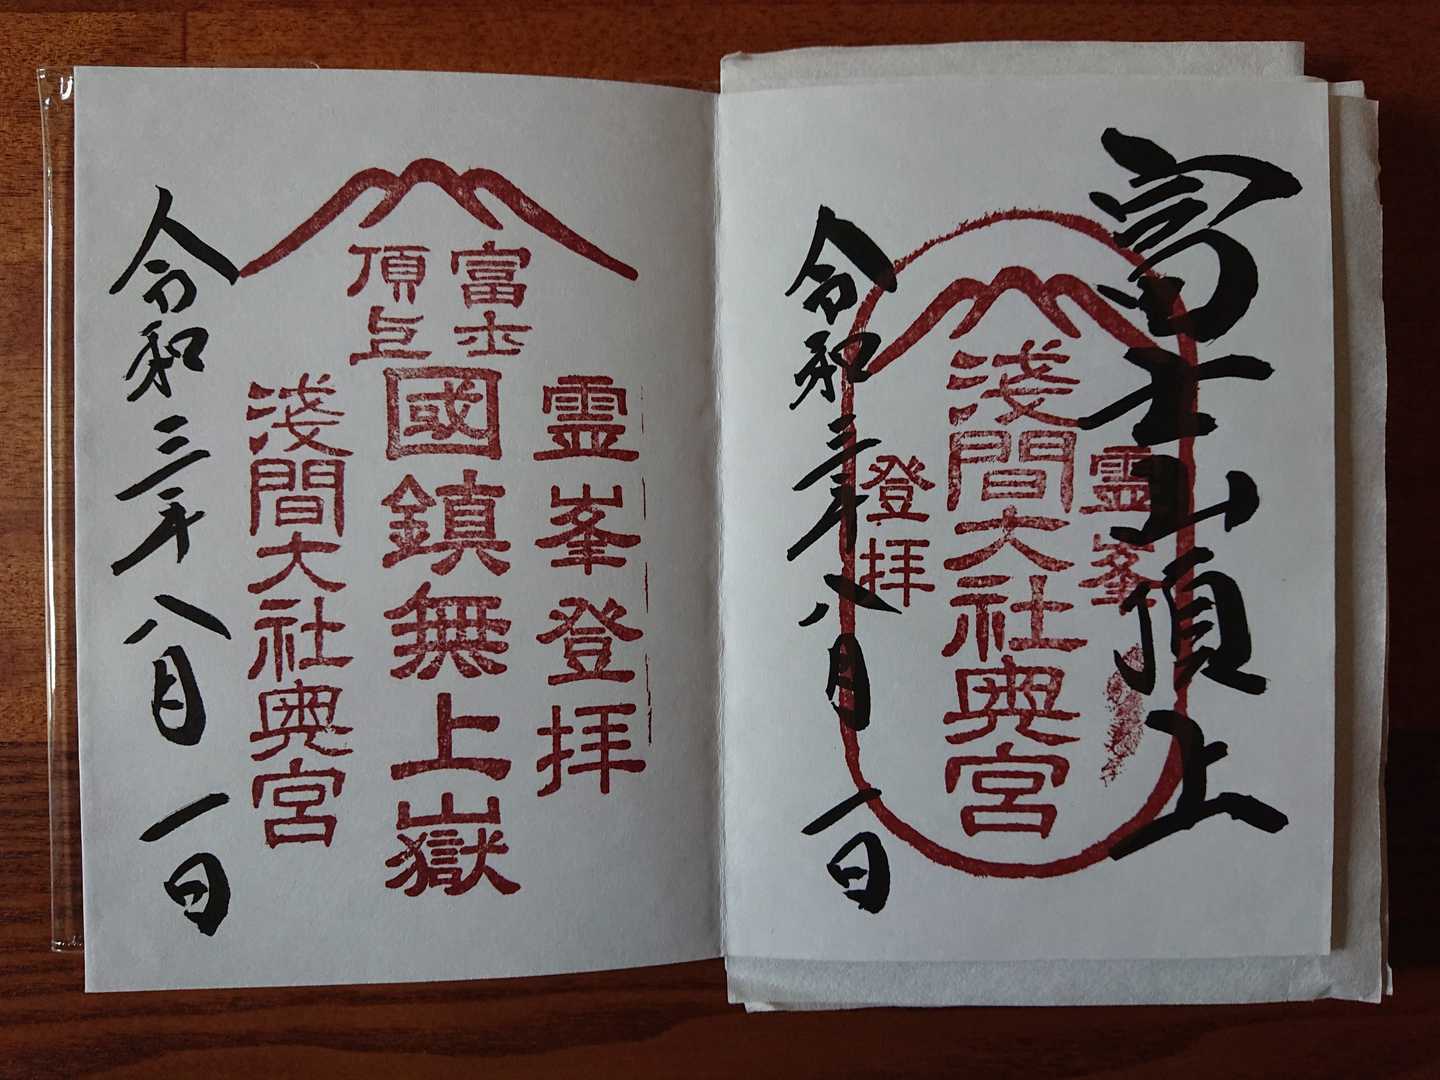 富士山頂上
霊峯
登拝
浅間大社奥宮
令和三年八月一日
富士
頂上
霊峯登拝
國鎮無上嶽
浅間大社奥宮
令和三年八月一日